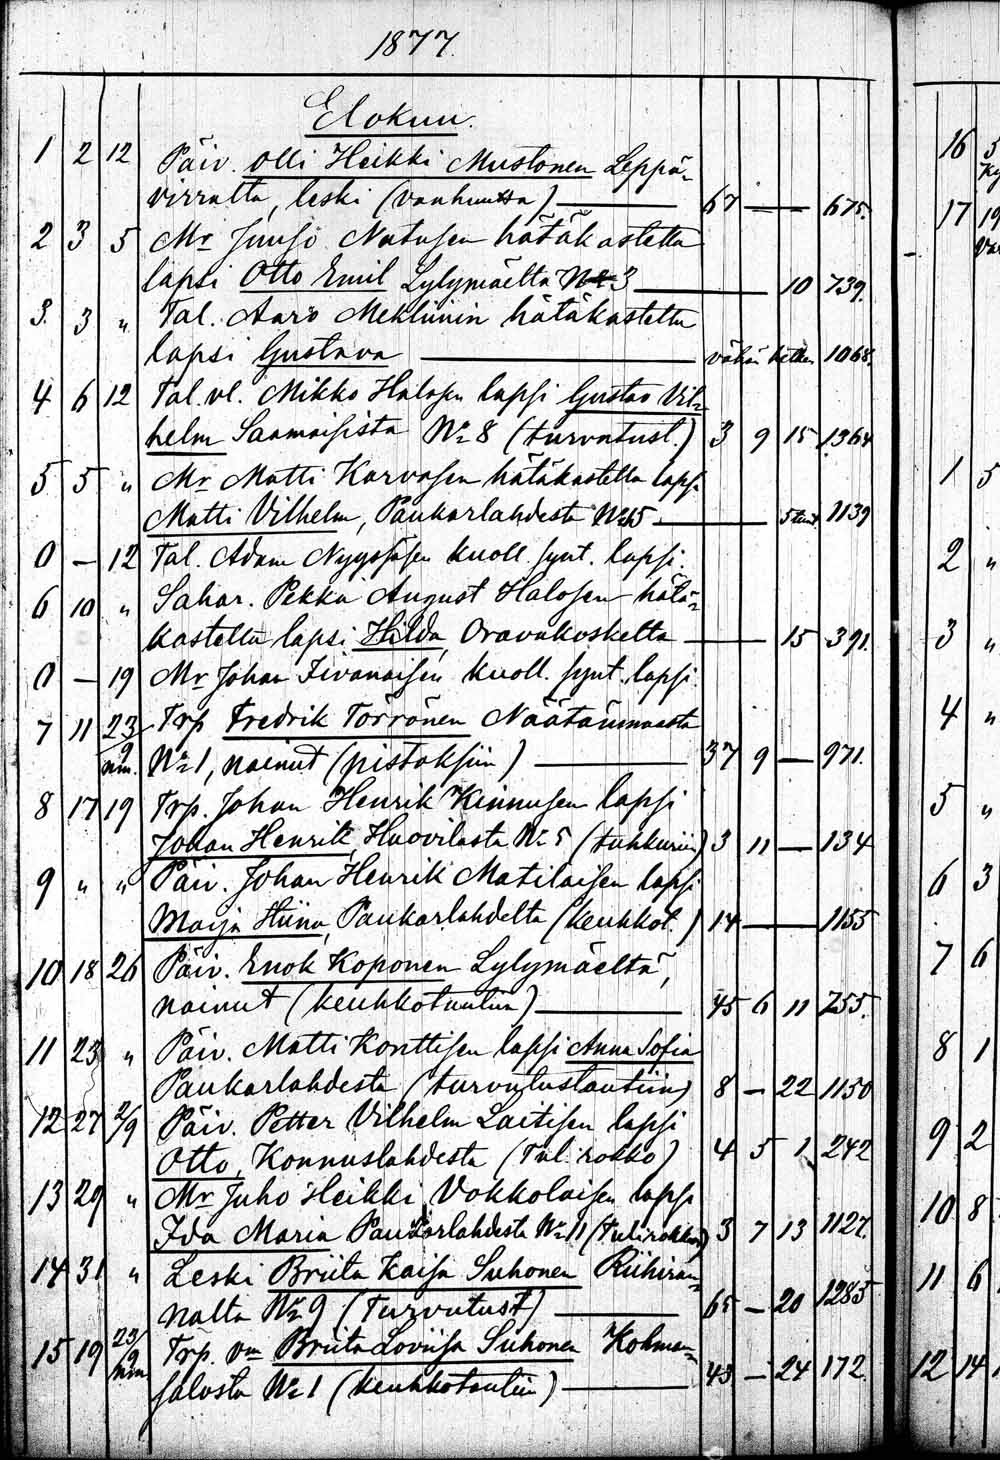 1877.
Elokuu.
1 2 12 Päiv. Olli Heikki Mustonen Leppä-
virralta, leski (vanhuutta) 67 — — 675.
2 3 5 Mr Juuso Natusen hätäkastettu
lapsi Otto Emil Lylymäeltä № 3 10 739.
3. 3 " Tal. Aaro Mekliinin hätäkastettu
lapsi Gustava vähän hetken 1068.
4 6 12 Tal. vl. Mikko Halosen lapsi Gustav Vil-
helm Saamaisista № 8 (turvatust.) 3 9 15 1364
5 5 " Mr Matti Karvosen hätäkastettu lapsi
Matti Vilhelm, Paukarlahdesta № 5 1139
0 — 12 Tal. Adam Nyyssösen kuoll. synt. lapsi.
6 10 " Sahar. Pekka August Halosen hätä-
kastettu lapsi Hilda, Oravakoskelta 15 391.
0 — 19 Mr Johan Iivanaisen kuoll. synt. lapsi
7 11 23/9 nim. Trp Fredrik Törrönen Näätänmaasta
№ 1, nainut (pistoksiin) 37 9 — 971.
8 17 19 Trp. Johan Henrik Kinnusen lapsi
Johan Henrik, Huovilasta № 5 (tuhkuriin) 3 11 — 134
9 " " Päiv. Johan Henrik Matilaisen lapsi
Maija Hiina, Paukarlahdelta (keuhkot.) 14 — 1155
10 18 26 Päiv. Enok Koponen Lylymäeltä,
nainut (keuhkotautiin) 45 6 11 755.
11 23 " Päiv. Matti Konttisen lapsi Anna Sofia
Paukarlahdesta (turvutustautiin) 8 — 22 1150
12 27 2/9 Päiv. Petter Vilhelm Laitisen lapsi
Otto, Konnuslahdesta (Tul. rokko) 4 5 1 242
13 29 " Mr Juho Heikki Vokkolaisen lapsi
Ida Maria Paukarlahdesta № 11 (tulirokkoon) 3 7 13 1127.
14 31 " Leski Briita Kaisa Suhonen Riihiran-
nalta № 9 (Turvutust) 65 — 20 1285
15 19 23/9 nim Trp. vm Briita Loviisa Suhonen Kohma-
salosta № 1 (keuhkotautiin) 43 — 24 172.
16 5
17 19
1 5
2 "
3 "
4 "
5 "
6 3
7 6
8 1
9 2
10 8
11 6
12 14